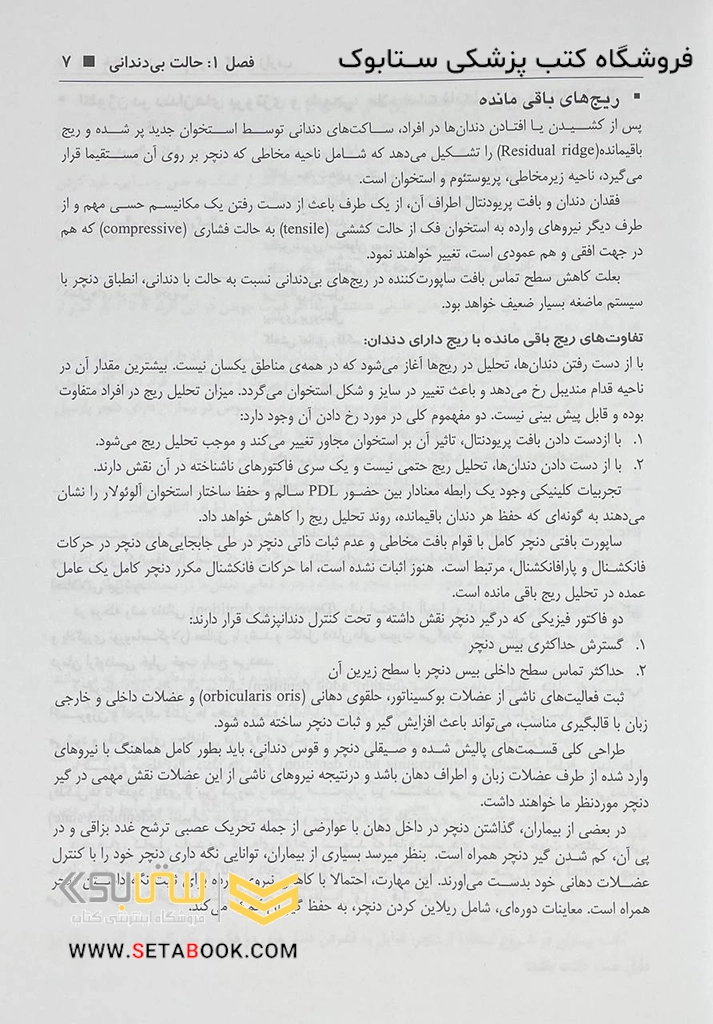 فروشگاه کتب پزشکی ستابوک
فصل ۱: حالت بی‌دندانی ■ ۷
▪ ریج‌های باقی مانده
پس از کشیدن یا افتادن دندان‌ها در افراد، ساکت‌های دندانی توسط استخوان جدید پر شده و ریج
باقیمانده(Residual ridge) را تشکیل می‌دهد که شامل ناحیه مخاطی که دنچر بر روی آن مستقیما قرار
می‌گیرد، ناحیه زیرمخاطی، پریوستئوم و استخوان است.
فقدان دندان و بافت پریودنتال اطراف آن، از یک طرف باعث از دست رفتن یک مکانیسم حسی مهم و از
طرف دیگر نیروهای وارده به استخوان فک از حالت کششی (tensile) به حالت فشاری (compressive) که هم
در جهت افقی و هم عمودی است، تغییر خواهند نمود.
بعلت کاهش سطح تماس بافت ساپورت‌کننده در ریج‌های بی‌دندانی نسبت به حالت با دندانی، انطباق دنچر با
سیستم ماضغه بسیار ضعیف خواهد بود.
تفاوت‌های ریج باقی مانده با ریج دارای دندان:
با از دست رفتن دندان‌ها، تحلیل در ریج‌ها آغاز می‌شود که در همه‌ی مناطق یکسان نیست. بیشترین مقدار آن در
ناحیه قدام مندیبل رخ می‌دهد و باعث تغییر در سایز و شکل استخوان می‌گردد. میزان تحلیل ریج در افراد متفاوت
بوده و قابل پیش بینی نیست. دو مفهموم کلی در مورد رخ دادن آن وجود دارد:
۱. با ازدست دادن بافت پریودنتال، تاثیر آن بر استخوان مجاور تغییر می‌کند و موجب تحلیل ریج می‌شود.
۲. با از دست دادن دندان‌ها، تحلیل ریج حتمی نیست و یک سری فاکتورهای ناشناخته در آن نقش دارند.
تجربیات کلینیکی وجود یک رابطه معنادار بین حضور PDL سالم و حفظ ساختار استخوان آلوئولار را نشان
می‌دهند به گونه‌ای که حفظ هر دندان باقیمانده، روند تحلیل ریج را کاهش خواهد داد.
ساپورت بافتی دنچر کامل با قوام بافت مخاطی و عدم ثبات ذاتی دنچر در طی جابجایی‌های دنچر در حرکات
فانکشنال و پارافانکشنال، مرتبط است. هنوز اثبات نشده است، اما حرکات فانکشنال مکرر دنچر کامل یک عامل
عمده در تحلیل ریج باقی مانده است.
دو فاکتور فیزیکی که درگیر دنچر نقش داشته و تحت کنترل دندانپزشک قرار دارند:
۱. گسترش حداکثری بیس دنچر
۲. حداکثر تماس سطح داخلی بیس دنچر با سطح زیرین آن
ثبت فعالیت‌های ناشی از عضلات بوکسیناتور، حلقوی دهانی (orbicularis oris) و عضلات داخلی و خارجی
زبان با قالبگیری مناسب، می‌تواند باعث افزایش گیر و ثبات دنچر ساخته شده شود.
طراحی کلی قسمت‌های پالیش شده و صیقلی دنچر و قوس دندانی، باید بطور کامل هماهنگ با نیروهای
وارد شده از طرف عضلات زبان و اطراف دهان باشد و درنتیجه نیروهای ناشی از این عضلات نقش مهمی در گیر
دنچر موردنظر ما خواهند داشت.
در بعضی از بیماران، گذاشتن دنچر در داخل دهان با عوارضی از جمله تحریک عصبی ترشح غدد بزاقی و در
پی آن، کم شدن گیر دنچر همراه است. بنظر میرسد بسیاری از بیماران، توانایی نگه داری دنچر خود را با کنترل
عضلات دهانی خود بدست می‌اورند. این مهارت، احتمالا با کاهش نیروی
همراه است. معاینات دوره‌ای، شامل ریلاین کردن دنچر، به حفظ می‌کند.
ستابوک
فروشگاه اینترنتی کتاب
WWW.SETABOOK.COM